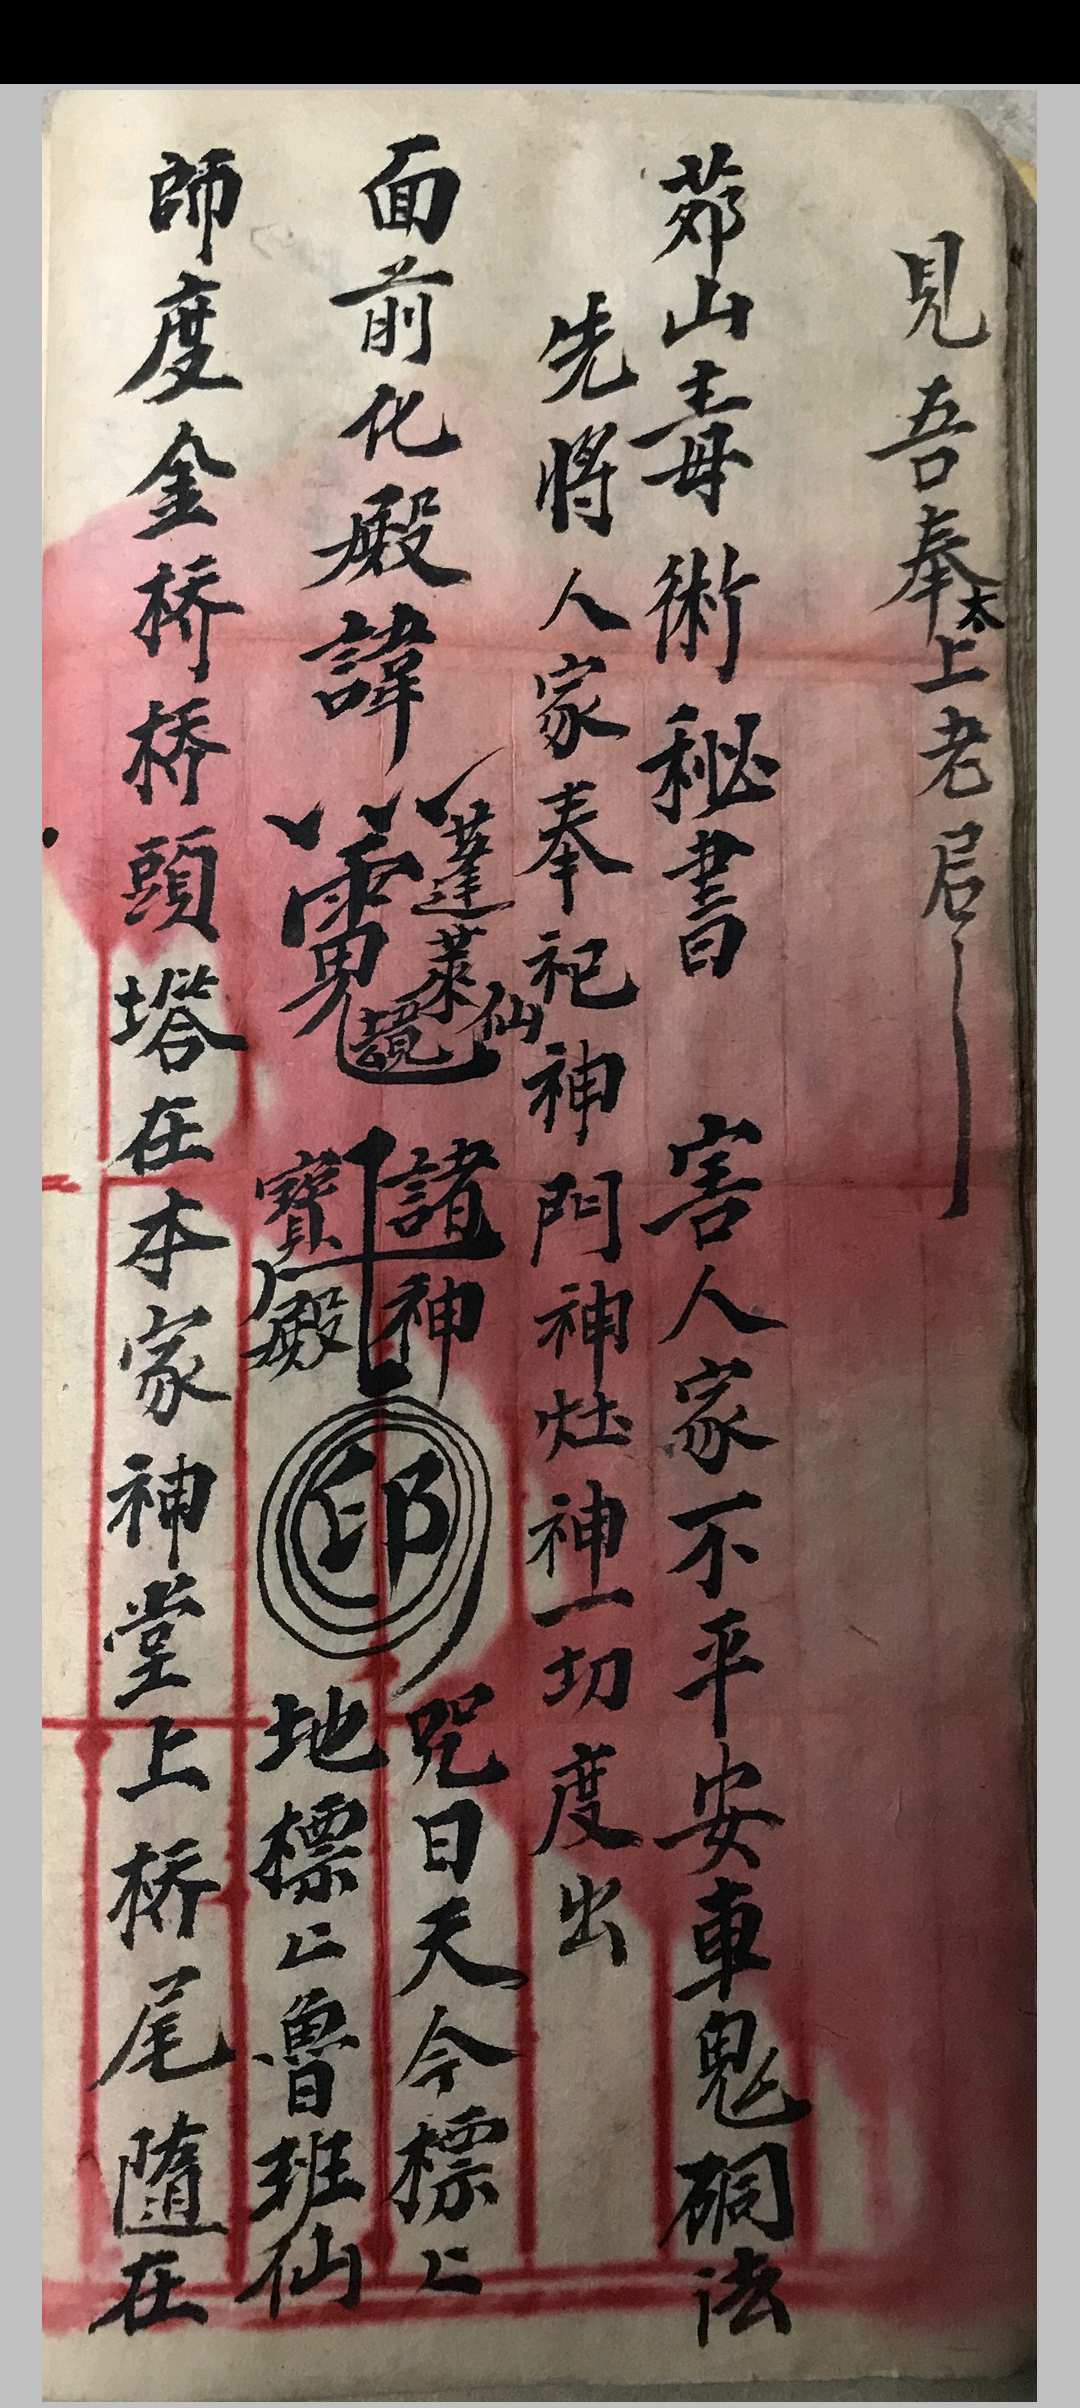 見吾奉太上老君
茆山毒術秘書 害人家不平安車鬼硐法
先將人家奉祀神門神灶神一切度出
面前化殿諱
蓬萊仙境
諸神
寶殿
印
咒曰天今標〻
地標〻魯班仙
師度金桥桥頭塔在本家神堂上桥尾隨在